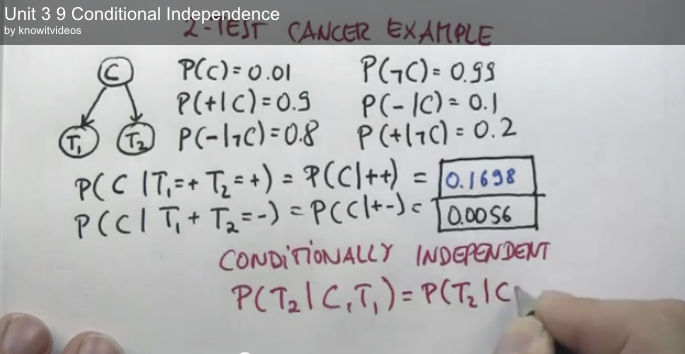 Unit 3 9 Conditional Independence
by knowitvideos
2-TEST CANCER EXAMPLE
C
P(C)=0.01 P(¬C)=0.99
P(+|C)=0.9 P(-|C)=0.1
T₁ T₂ P(-|¬C)=0.8 P(+|¬C)=0.2
P(C|T₁=+ T₂=+) = P(C|++) = 0.1698
P(C|T₁+ T₂=-) = P(C|+-) = 0.0056
CONDITIONALLY INDEPENDENT
P(T₂|C,T₁)=P(T₂|C